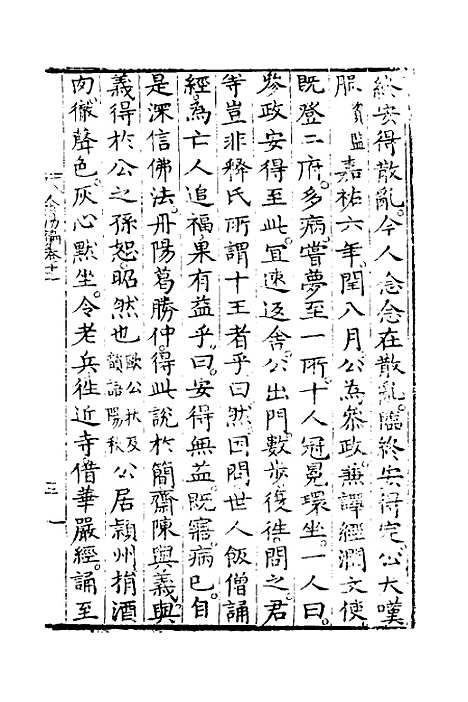 終安得散亂。今人念念在散亂。臨終安得定。公大嘆
服 資監 嘉祐六年。閏八月。公為叅政。兼譯經潤文使
既登二府。多病。嘗夢至一所。十人冠冕環坐。一人曰。
參政安得至此。宜速返舍。公出門數步。復徃問之。君
等豈非釋氏所謂十王者乎。曰然。因問世人飯僧誦
經。為亡人追福。果有益乎。曰。安得無益。既寤。病已。自
是深信佛法。丹陽葛勝仲。得此說於簡齋陳與義。與
義得於公之孫恕。昭然也 歐公狀及韻語陽秋 公居潁州。捐酒
肉。徹聲色。灰心默坐。令老兵徃近寺。借華嚴經。誦至
卷十二
三